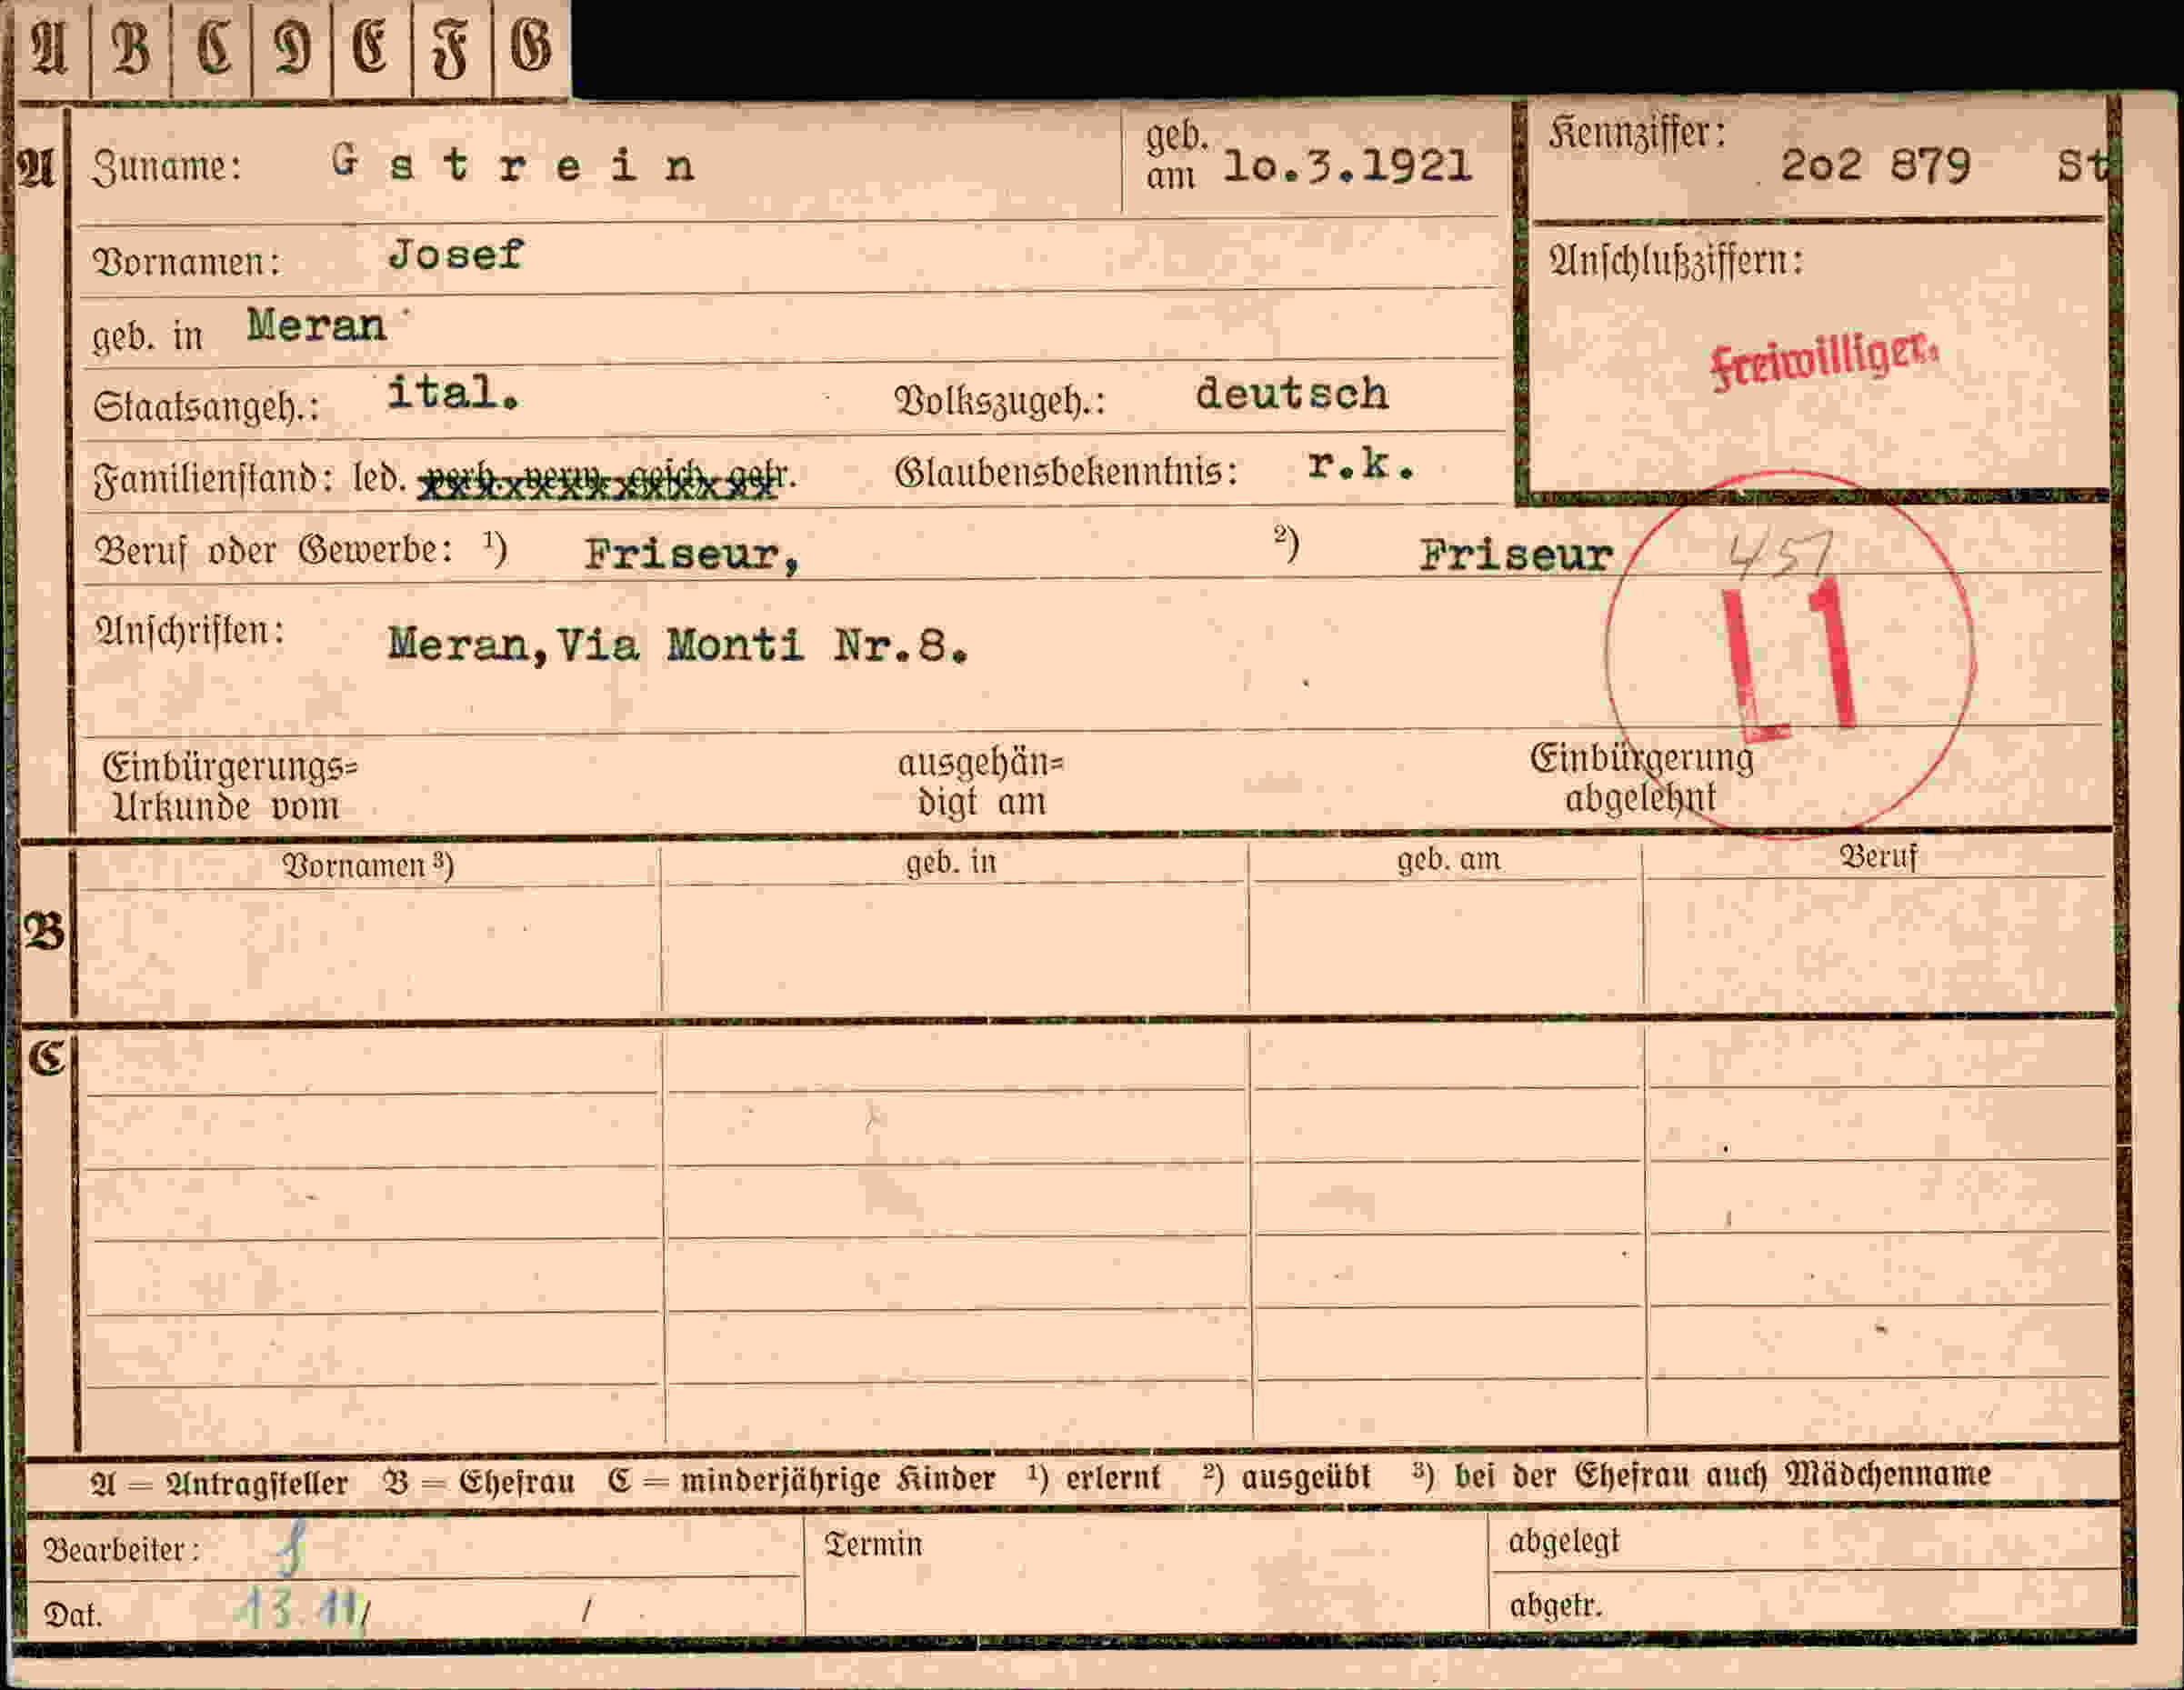 A B C D E F G
A Zuname: Gstrein geb. am 1o.3.1921 Kennziffer: 2o2 879 St
Vornamen: Josef Anschlußziffern:
geb. in Meran Freiwilliger.
Staatsangeh.: ital. Volkszugeh.: deutsch
Familienstand: led. verh. verw. gesch. getr. Glaubensbekenntnis: r.k.
Beruf oder Gewerbe: ¹) Friseur, ²) Friseur 457
L1
Anschriften: Meran, Via Monti Nr.8.
Einbürgerungs= ausgehän= Einbürgerung
Urkunde vom digt am abgelehnt
Vornamen ³) geb. in geb. am Beruf
B
C
A = Antragsteller B = Ehefrau C = minderjährige Kinder ¹) erlernt ²) ausgeübt ³) bei der Ehefrau auch Mädchenname
Bearbeiter: Termin abgelegt
Dat. 13.11/ / abgetr.